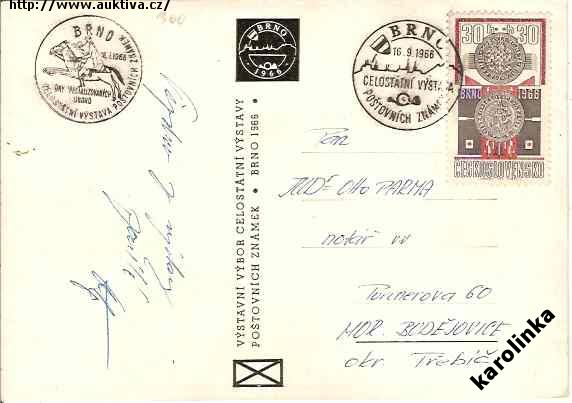 http://www.auktiva.cz/
360
BRNO
DNY SPECIALIZOVANÝCH
CELOSTÁTNÍ VÝSTAVA POŠTOVNÍCH ZNÁMEK
BRNO
1966
BRNO
16.9.1966
CELOSTÁTNÍ VÝSTAVA
POŠTOVNÍCH ZNÁMEK
30 30
BRNO 1966
ČESKOSLOVENSKO
VÝSTAVNÍ VÝBOR CELOSTÁTNÍ VÝSTAVY
POŠTOVNÍCH ZNÁMEK • BRNO 1966 •
Pan
JUDr Otto PARMA
notář vv
60
MOR. BUDĚJOVICE
okr. Třebíč
karolinka